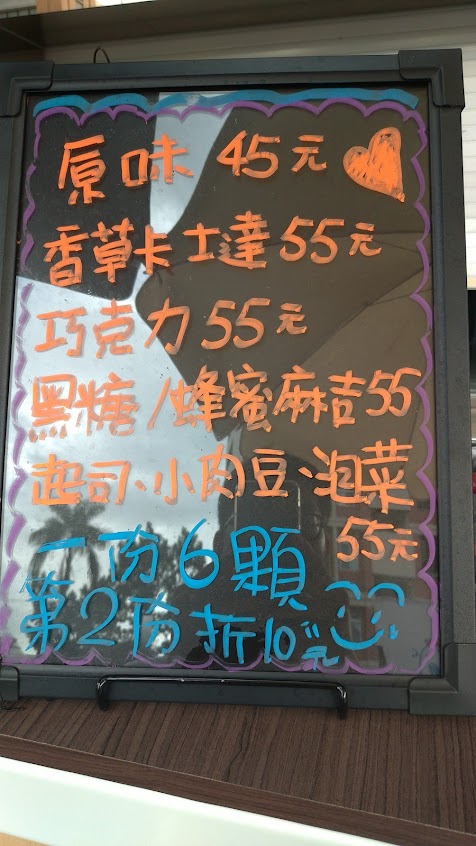 原味 45元
香草卡士達55元
巧克力55元
黑糖/蜂蜜麻吉55
起司、小肉豆、泡菜
55元
一份6顆
第2份折10元